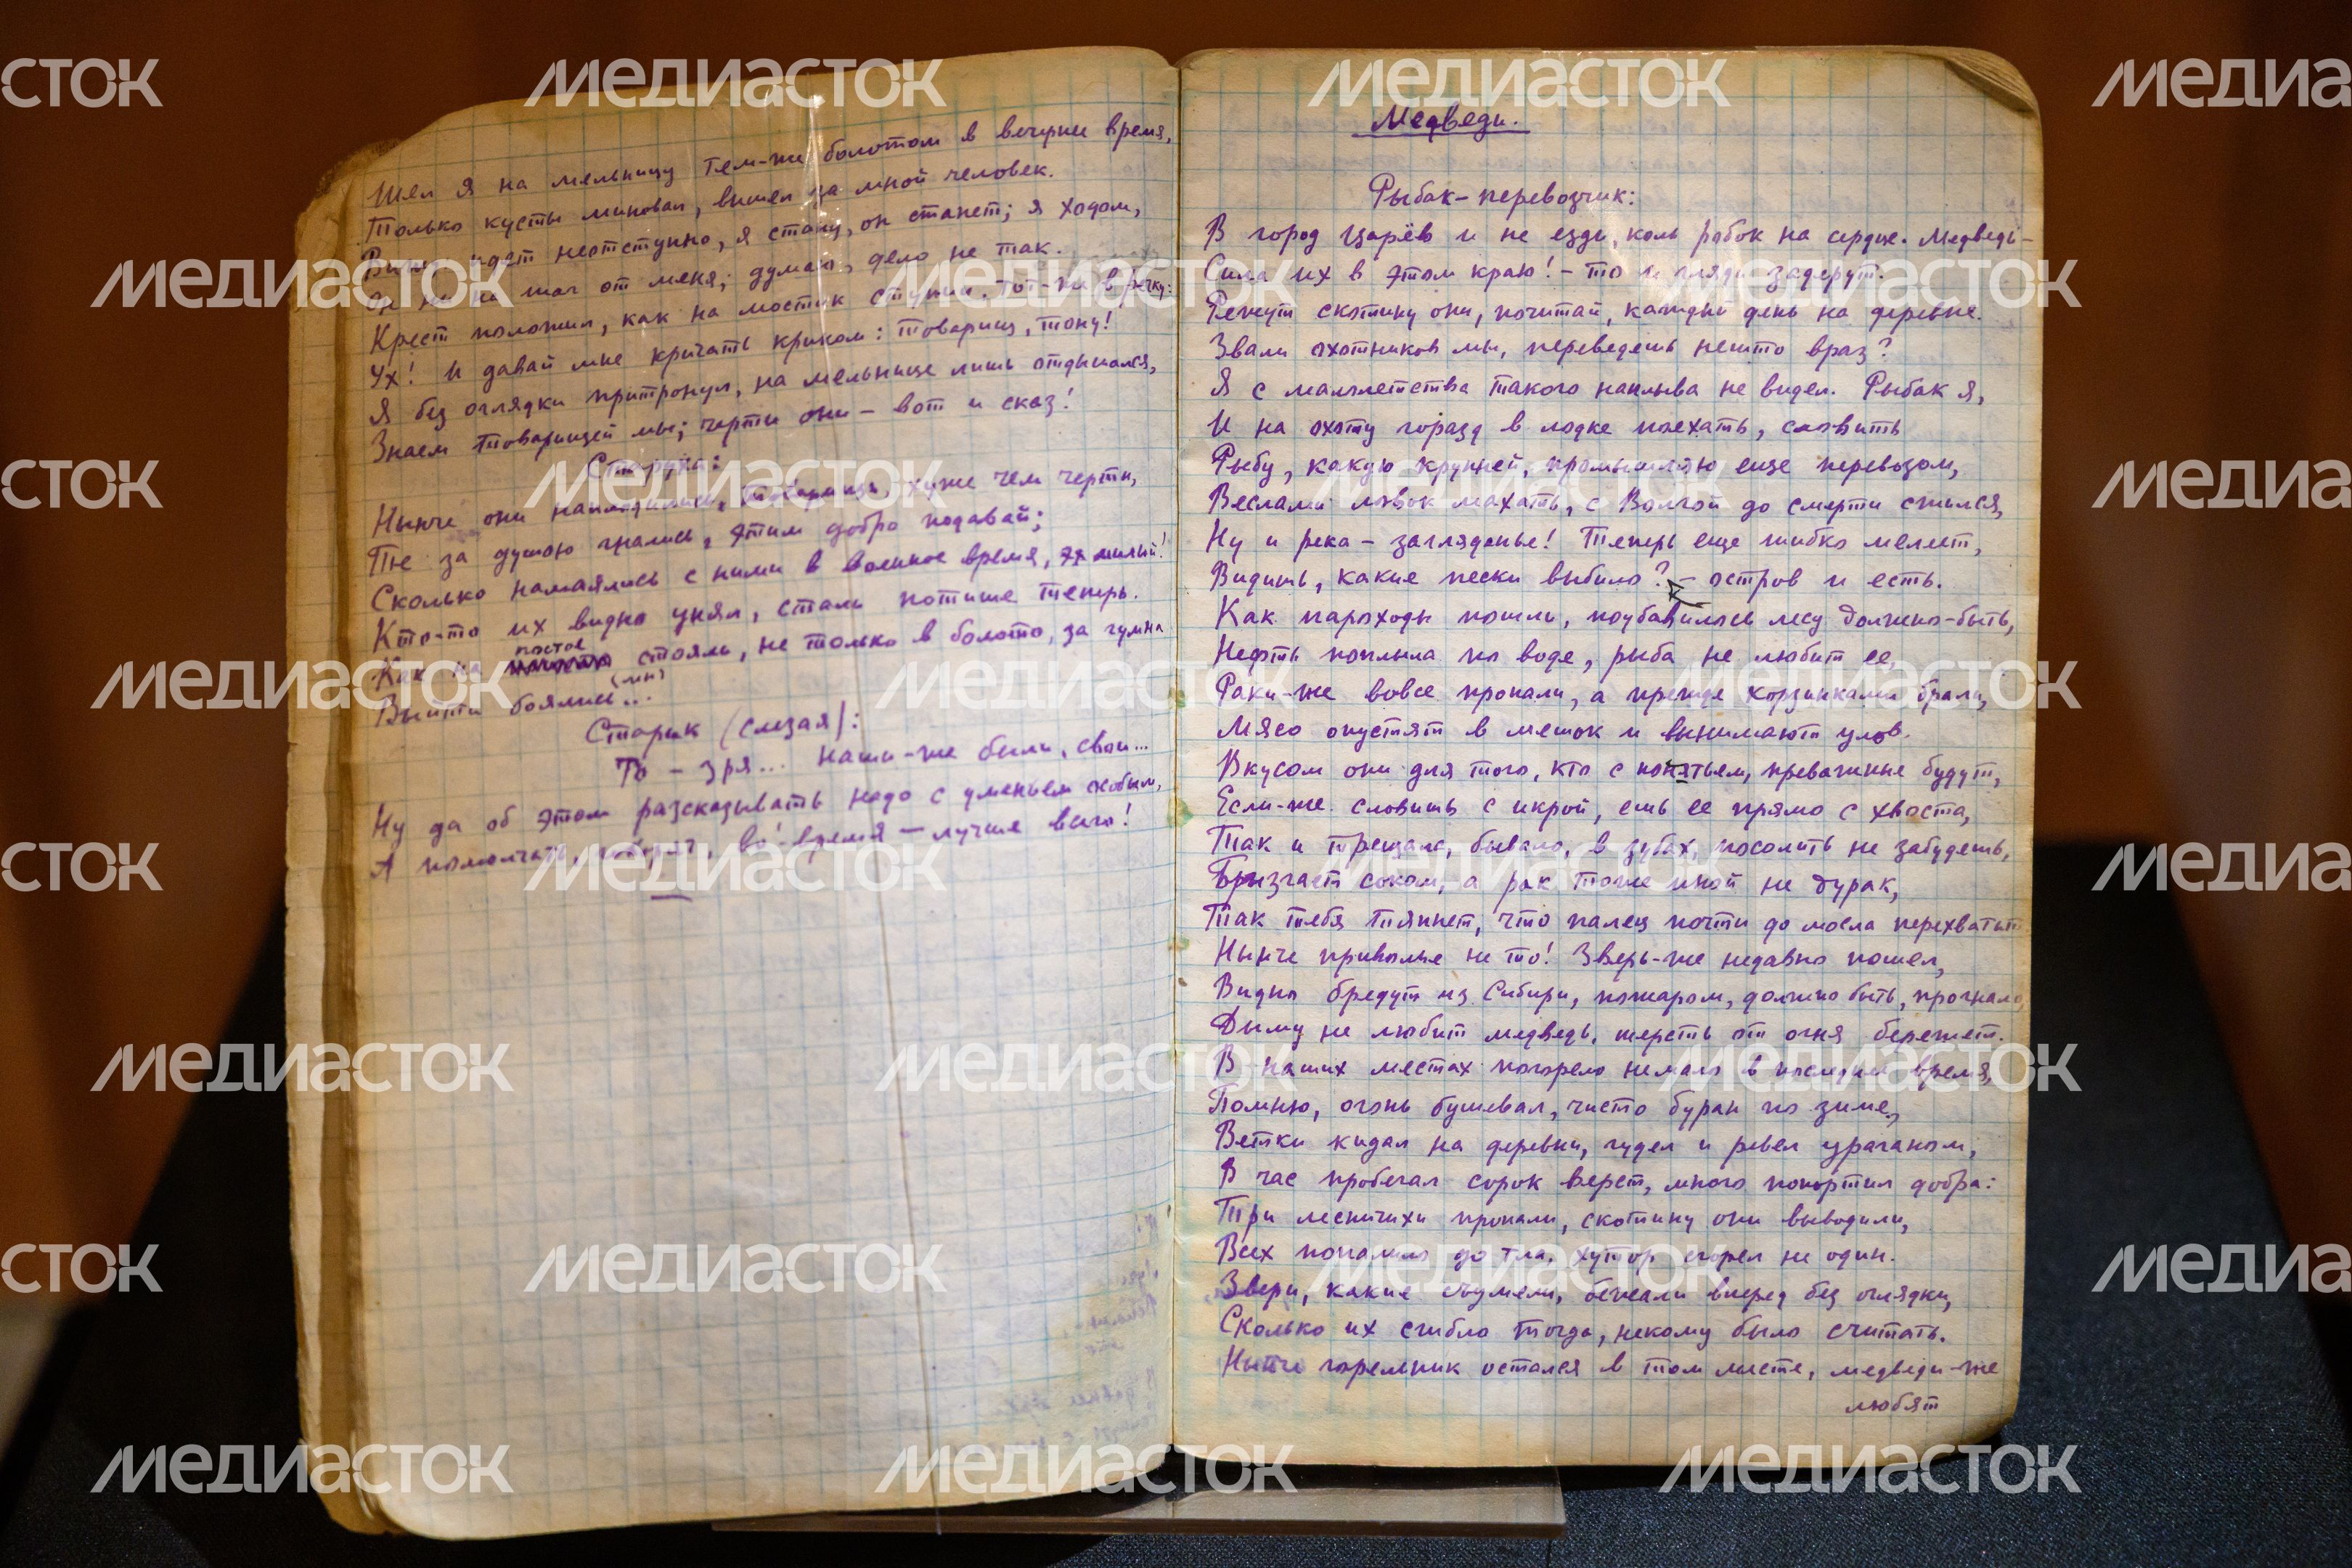 Шел я на мельницу тем-же болотом в вечернее время,
Только кусты миновал, вышел за мной человек.
Вижу идет неотступно, я стану, он станет; я ходом,
Он ни на шаг от меня; думаю, дело не так.
Крест положил, как на мостик ступил. Тот-же в речку:
Ух! И давай мне кричать криком: товарищ, тону!
Я без оглядки припустил, на мельнице лишь отдышался,
Знаем товарищей мы; черти они – вот и сказ!
Старуха:
Нынче они наплодились, товарищи, хуже чем черти,
Те за душою гнались, этим добро подавай;
Сколько намаялись с ними в военное время, эх милый!
Кто-то их видно унял, стали потише теперь.
Как на постое стояли, не только в болото, за гумна
Выйти боялись...
Старик (слезая):
То – зря... Наши-же были, свои...
Ну да об этом разсказывать надо с уменьем особым,
А помолчать, во́-время – лучше всего!
Медведи.
Рыбак-перевозчик:
В город Царёв и не езди, коль робок на сердце. Медведь-
Сила их в этом краю! – то и гляди задерут.
Режут скотину они, почитай, каждый день на деревне.
Звали охотников мы, переведешь нешто враз?
Я с малолетства такого наплыва не видел. Рыбак я,
И на охоту горазд в лодке поехать, словить
Рыбу, какую крупней, промышляю еще перевозом,
Веслами ловок махать, с Волгой до смерти сжился,
Ну и река – загляденье! Теперь еще шибко мелеет,
Видишь, какие пески выбило? – остров и есть.
Как пароходы пошли, поубавилось лесу должно-быть,
Нефть поплыла по воде, рыба не любит ее,
Раки-же вовсе пропали, а прежде корзинками брали,
Мясо опустят в мешок и вынимают улов.
Вкусом они для того, кто с понятьем, преважные будут,
Если-же словишь с икрой, ешь ее прямо с хвоста,
Так и трещала, бывало, в зубах, посолить не забудешь,
Брызгает соком, а рак тоже иной не дурак,
Так тебя тяпнет, что палец почти до мосла перехватит
Нынче приволье не то! Зверь-же недавно пошел,
Видно бредут из Сибири, пожаром, должно быть, прогнало,
Дыму не любит медведь, шерсть от огня бережет.
В наших местах погорело немало в последнее время,
Помню, огонь бушевал, чисто буран по зиме,
Ветки кидал на деревни, гудел и ревел ураганом,
В час пробегал сорок верст, много попортил добра:
Три лесничихи пропали, скотину они выводили,
Всех попалило до тла, хутор сгорел не один.
Звери, какие сбумели, бежали вперед без оглядки,
Сколько их сгибло тогда, некому было считать.
Нынче горельник остался в том месте, медведи-же
любят